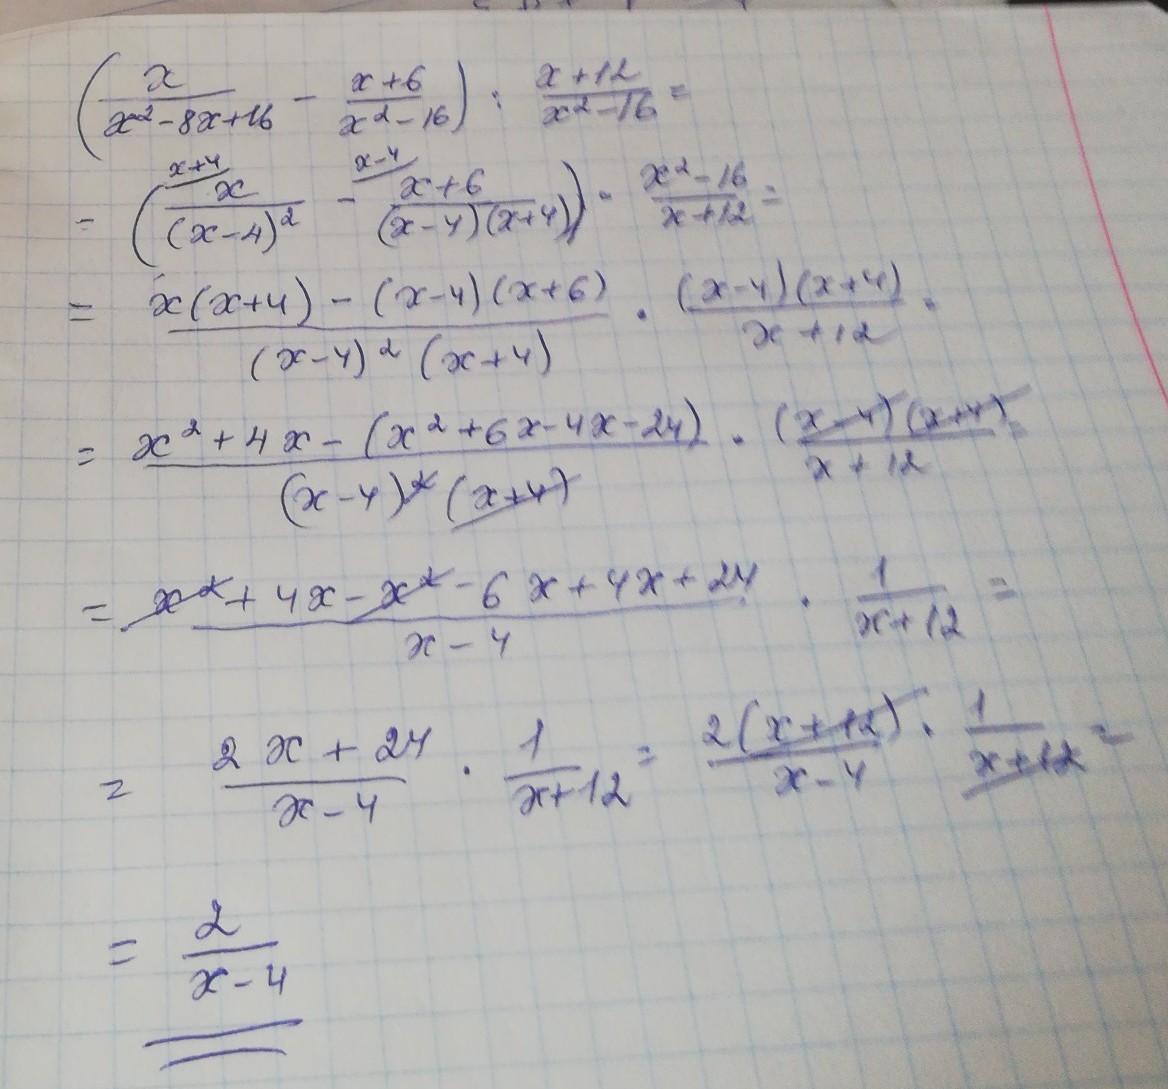 (x/(x²-8x+16) - (x+6)/(x²-16)) : (x+12)/(x²-16) =
x+4 x-4
= (x/(x-4)² - (x+6)/((x-4)(x+4))) · (x²-16)/(x+12) =
= (x(x+4) - (x-4)(x+6))/((x-4)²(x+4)) · ((x-4)(x+4))/(x+12) =
= (x²+4x-(x²+6x-4x-24))/((x-4)²(x+4)) · ((x-4)(x+4))/(x+12) =
= (x²+4x-x²-6x+4x+24)/(x-4) · 1/(x+12) =
= (2x+24)/(x-4) · 1/(x+12) = (2(x+12))/(x-4) · 1/(x+12) =
= 2/(x-4)